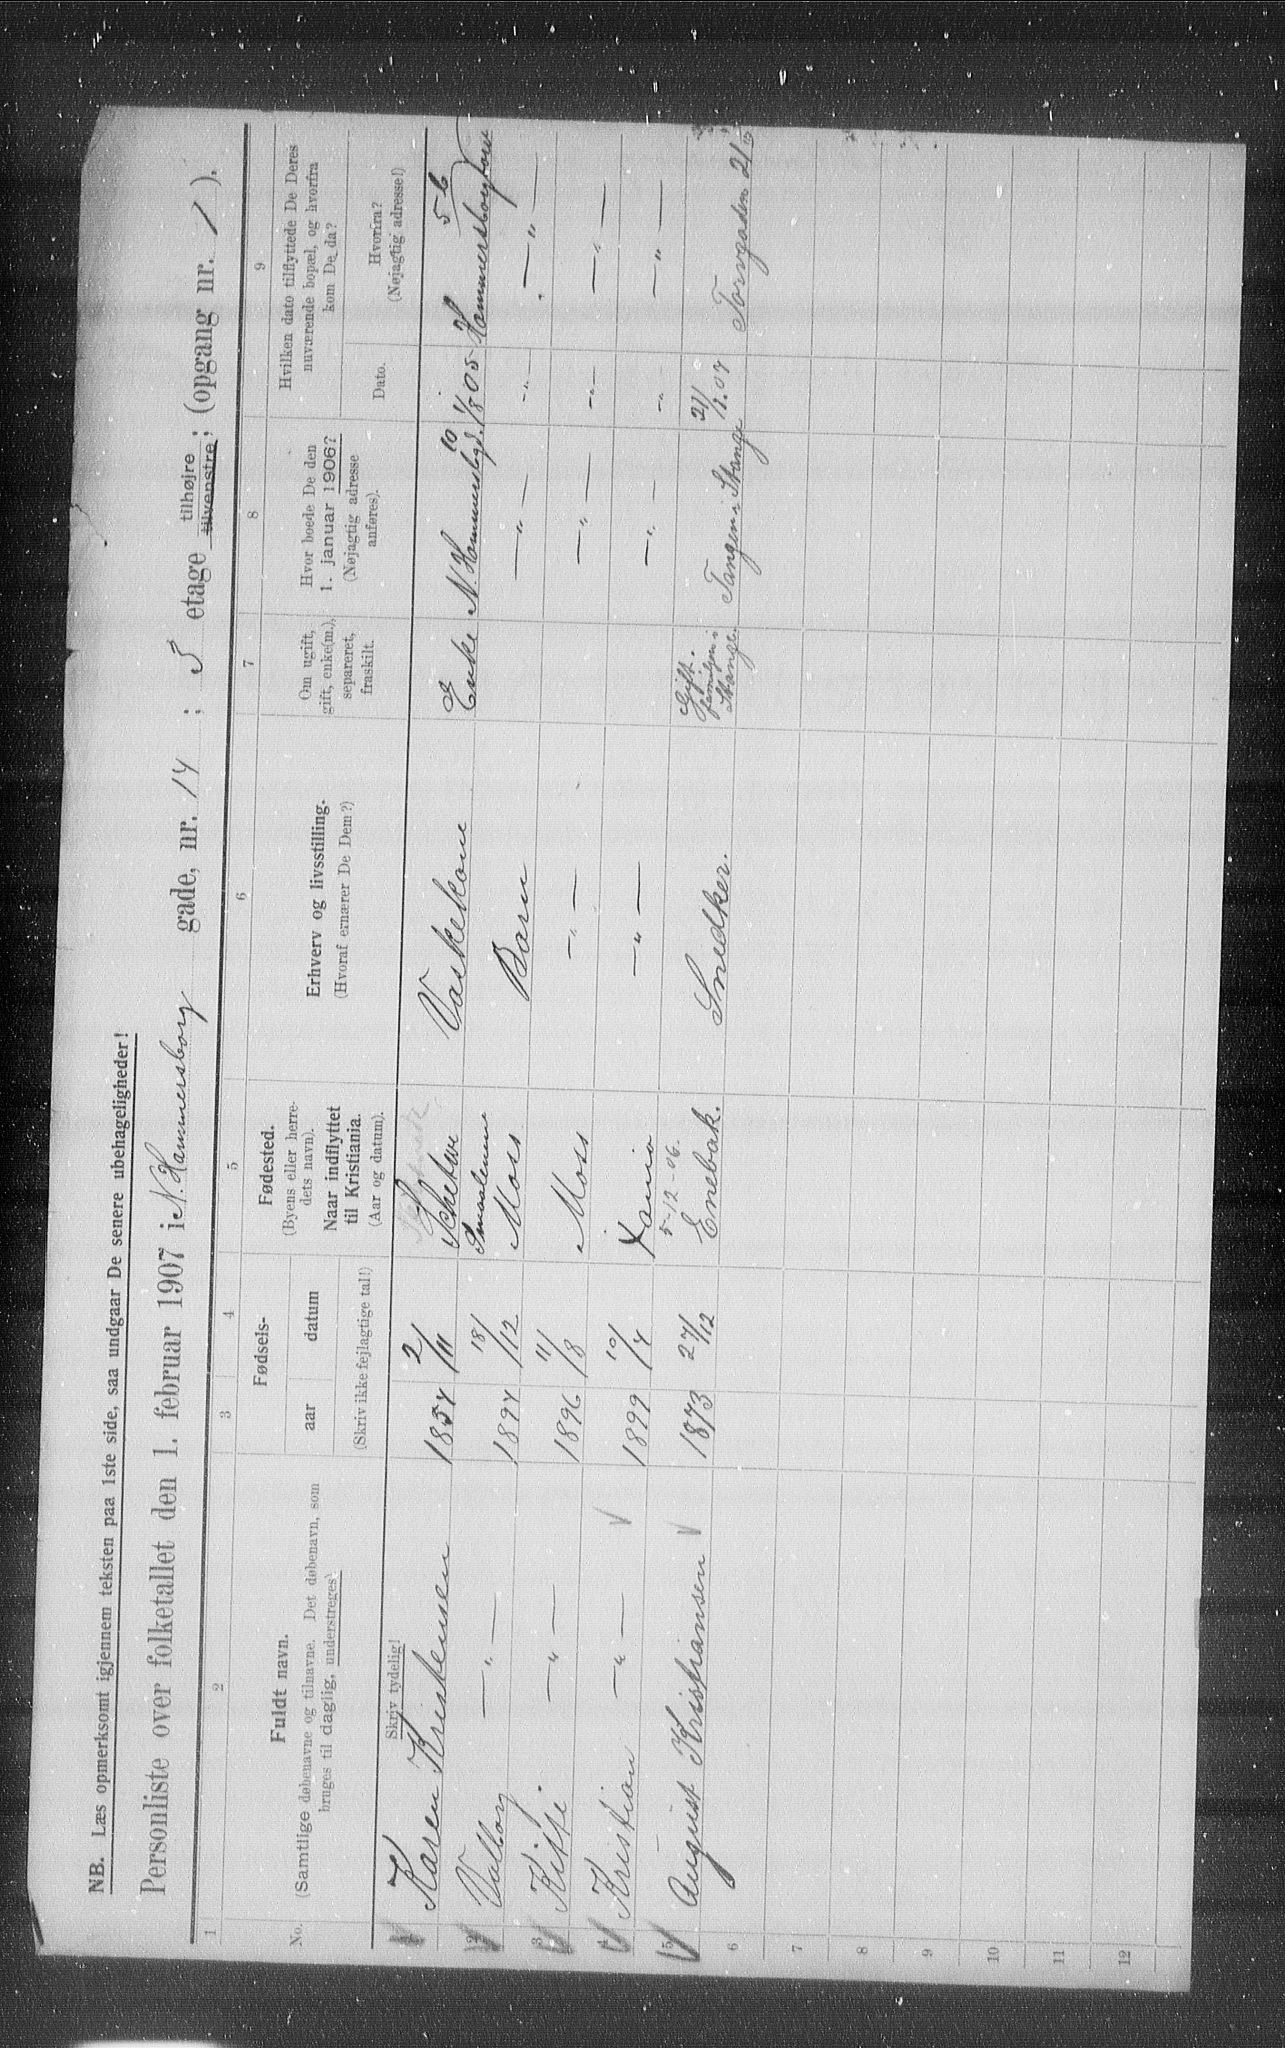 NB. Læs opmerksomt igjennem teksten paa 1ste side, saa undgaar De senere ubehageligheder!
Personliste over folketallet den 1. februar 1907 i N. Hammersborg gade, nr. 14 ; 3 etage tilhøjre tilvenstre; (opgang nr. 1 ).
1 2 3 4 5 6 7 8 9
No.
Fuldt navn.
(Samtlige døbenavne og tilnavne. Det døbenavn, som
bruges til daglig, understreges)
Skriv tydelig!
Fødsels-
aar datum
(Skriv ikke fejlagtige tal!)
Fødested.
(Byens eller herre-
dets navn).
Naar indflyttet
til Kristiania.
(Aar og datum).
Erhverv og livsstilling.
(Hvoraf ernærer De Dem?)
Om ugift,
gift, enke(m.),
separeret,
fraskilt.
Hvor boede De den
1. januar 1906?
(Nøjagtig adresse
anføres).
Hvilken dato tilflyttede De Deres
nuværende bopæl, og hvorfra
kom De da?
Dato.
Hvorfra?
(Nøjagtig adresse!)
Karen Kristensen 1854 2/11 Smaalenene Vaskekone Enke N. Hammersbgd. 10 1/8 05 Hammersborgtorv 5 b
2 Valborg —"— 1894 18/12 Moss Barn —"— —"— —"—
3 Kitti —"— 1896 11/8 Moss —"— —"— —"— —"—
4 Kristian —"— 1899 10/4 Xania —"— —"— —"— —"—
5-12-06.
5 August Kristiansen 1873 27/12 Enebak. Snedker. Gift. familjen i Stange. Tangen i Stange 21/1.07 Torvgaden 21
6
7
8
9
10
11
12